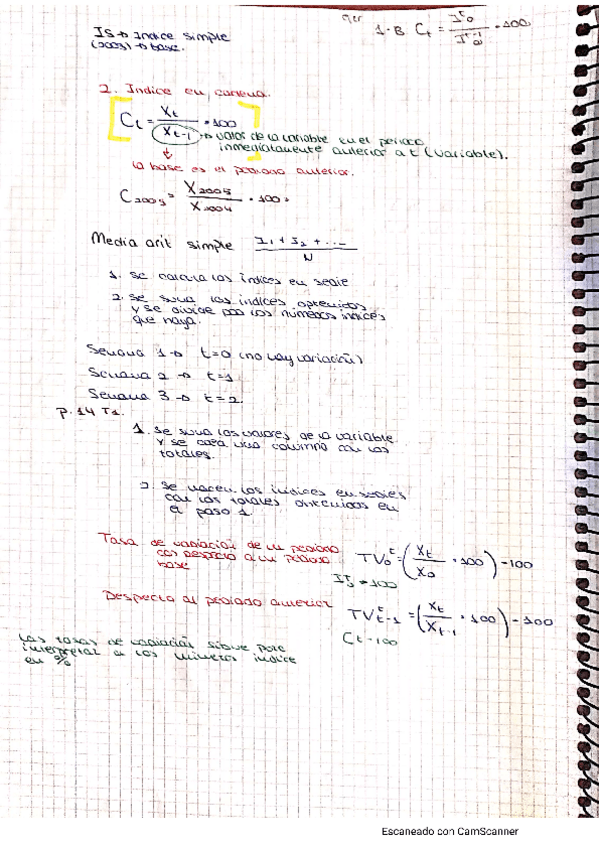 IS → Indice simple
(2003) → base.
1·B Ct = I^t_0 / I^{t-1}_0 · 100
2. Indice en cadena.
Ct = Xt / Xt-1 · 100
→ valor de la variable en el periodo
inmediatamente anterior a t (variable).
la base es el periodo anterior.
C2005 = X2005 / X2004 · 100.
Media arit simple I1 + I2 + ... / N
1. se calcula los indices en serie
2. se suma los indices obtenidos
y se divide por los números indices
que haya.
Semana 1 → t=0 (no hay variación)
Semana 2 → t=1
Semana 3 → t=2
p. 14 T1.
1. se suma los valores de la variable
y se crea una columna con los
totales.
2. se hacen los indices en series
con los totales obtenidos en
el paso 1.
Tasa de variación de un periodo
con respecto a un periodo
base
TV^t_0 = (Xt / X0 · 100) - 100
I^t_0 - 100
Respecto al periodo anterior
TV^t_{t-1} = (Xt / Xt-1 · 100) - 100
Ct - 100
Las tasas de variación sirve para
interpretar a los números indice
en %
Escaneado con CamScanner